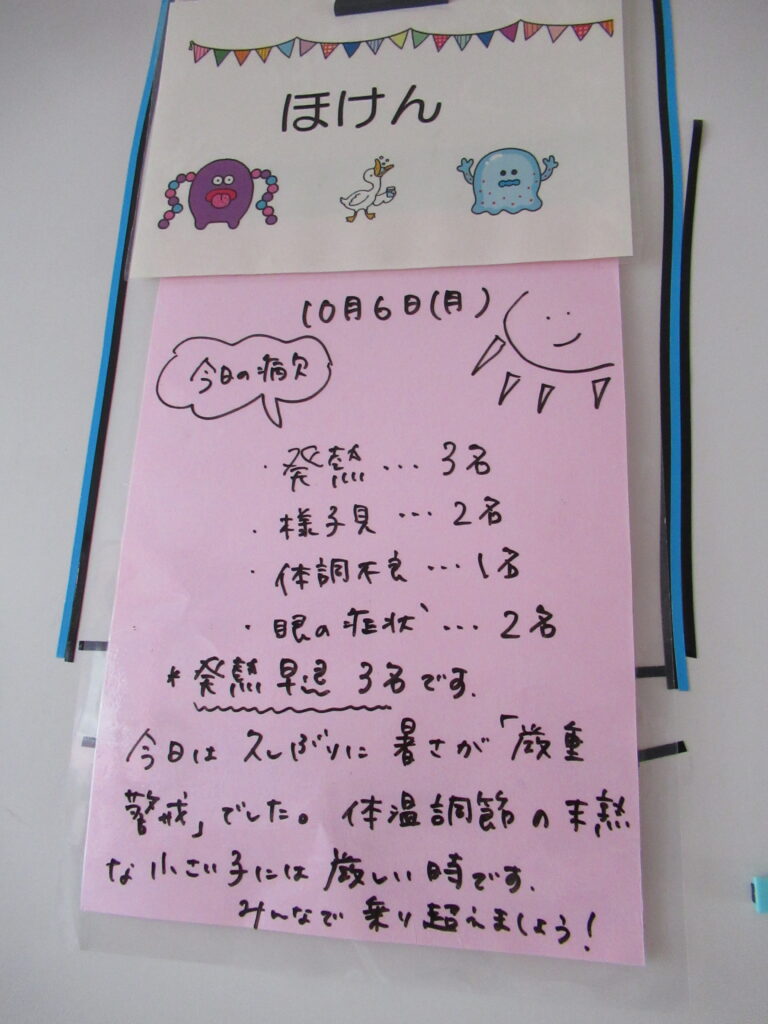 ほけん
10月6日(月)
今日の病欠
・発熱…3名
・様子見…2名
・体調不良…1名
・眼の症状…2名
*発熱早退 3名です.
今日は久しぶりに暑さが「厳重
警戒」でした。体温調節の未熟
な小さい子には厳しい時です.
みんなで乗り超えましょう!